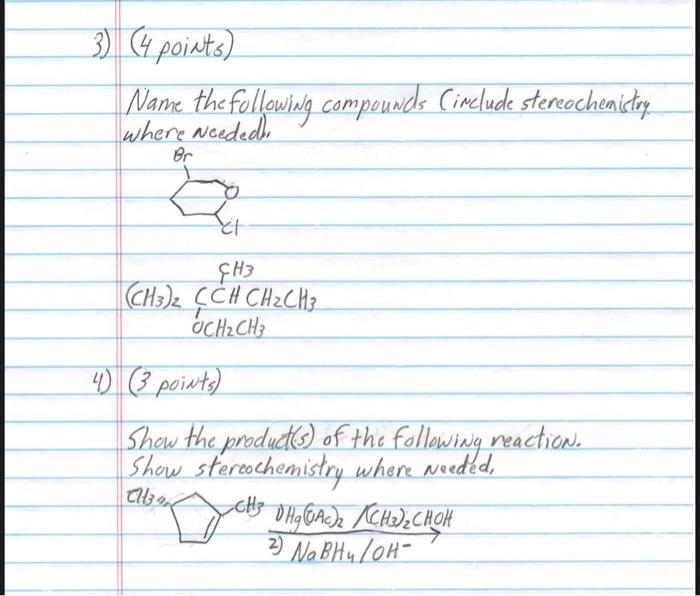 3) (4 points)
Name the following compounds (include stereochemistry
where needed).
Br
O
Cl
CH3
(CH3)2 CCH CH2CH3
OCH2CH3
4) (3 points)
Show the product(s) of the following reaction.
Show stereochemistry where needed.
CH3
CH3
1) Hg(OAc)2 /(CH3)2CHOH
2) NaBH4/OH-